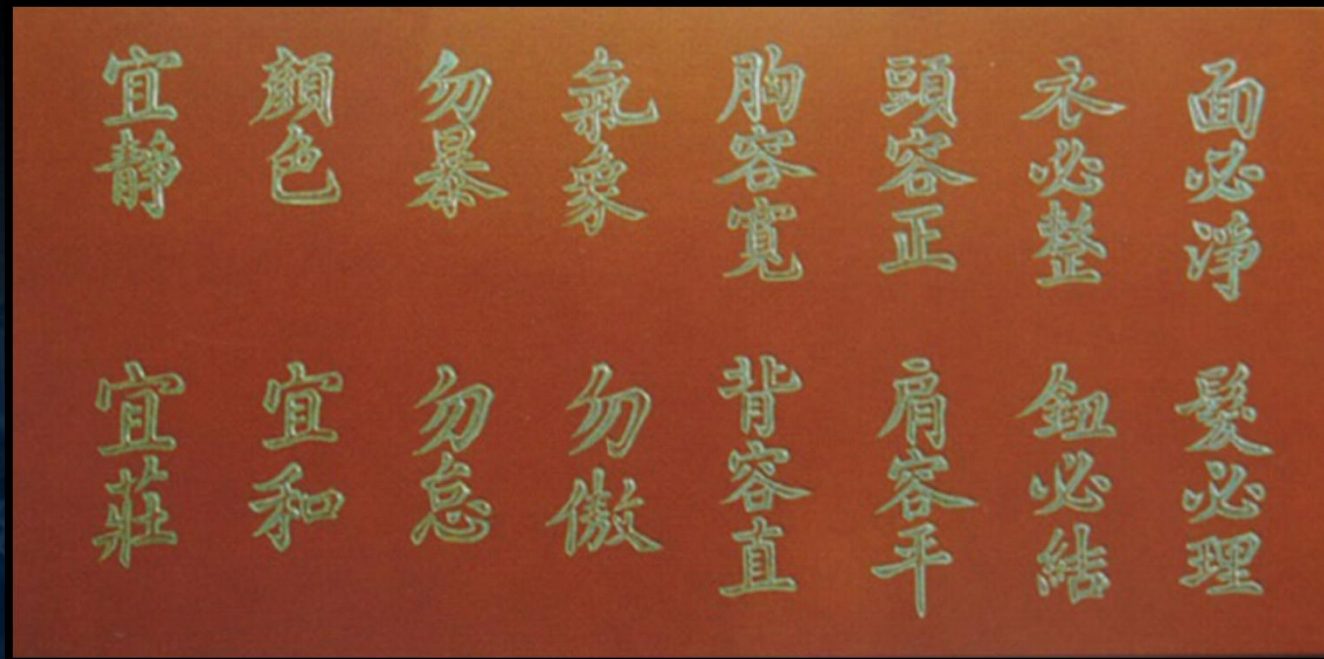 面必淨 髮必理
衣必整 鈕必結
頭容正 肩容平
胸容寬 背容直
氣象 勿傲
勿暴 勿怠
顏色 宜和
宜靜 宜莊